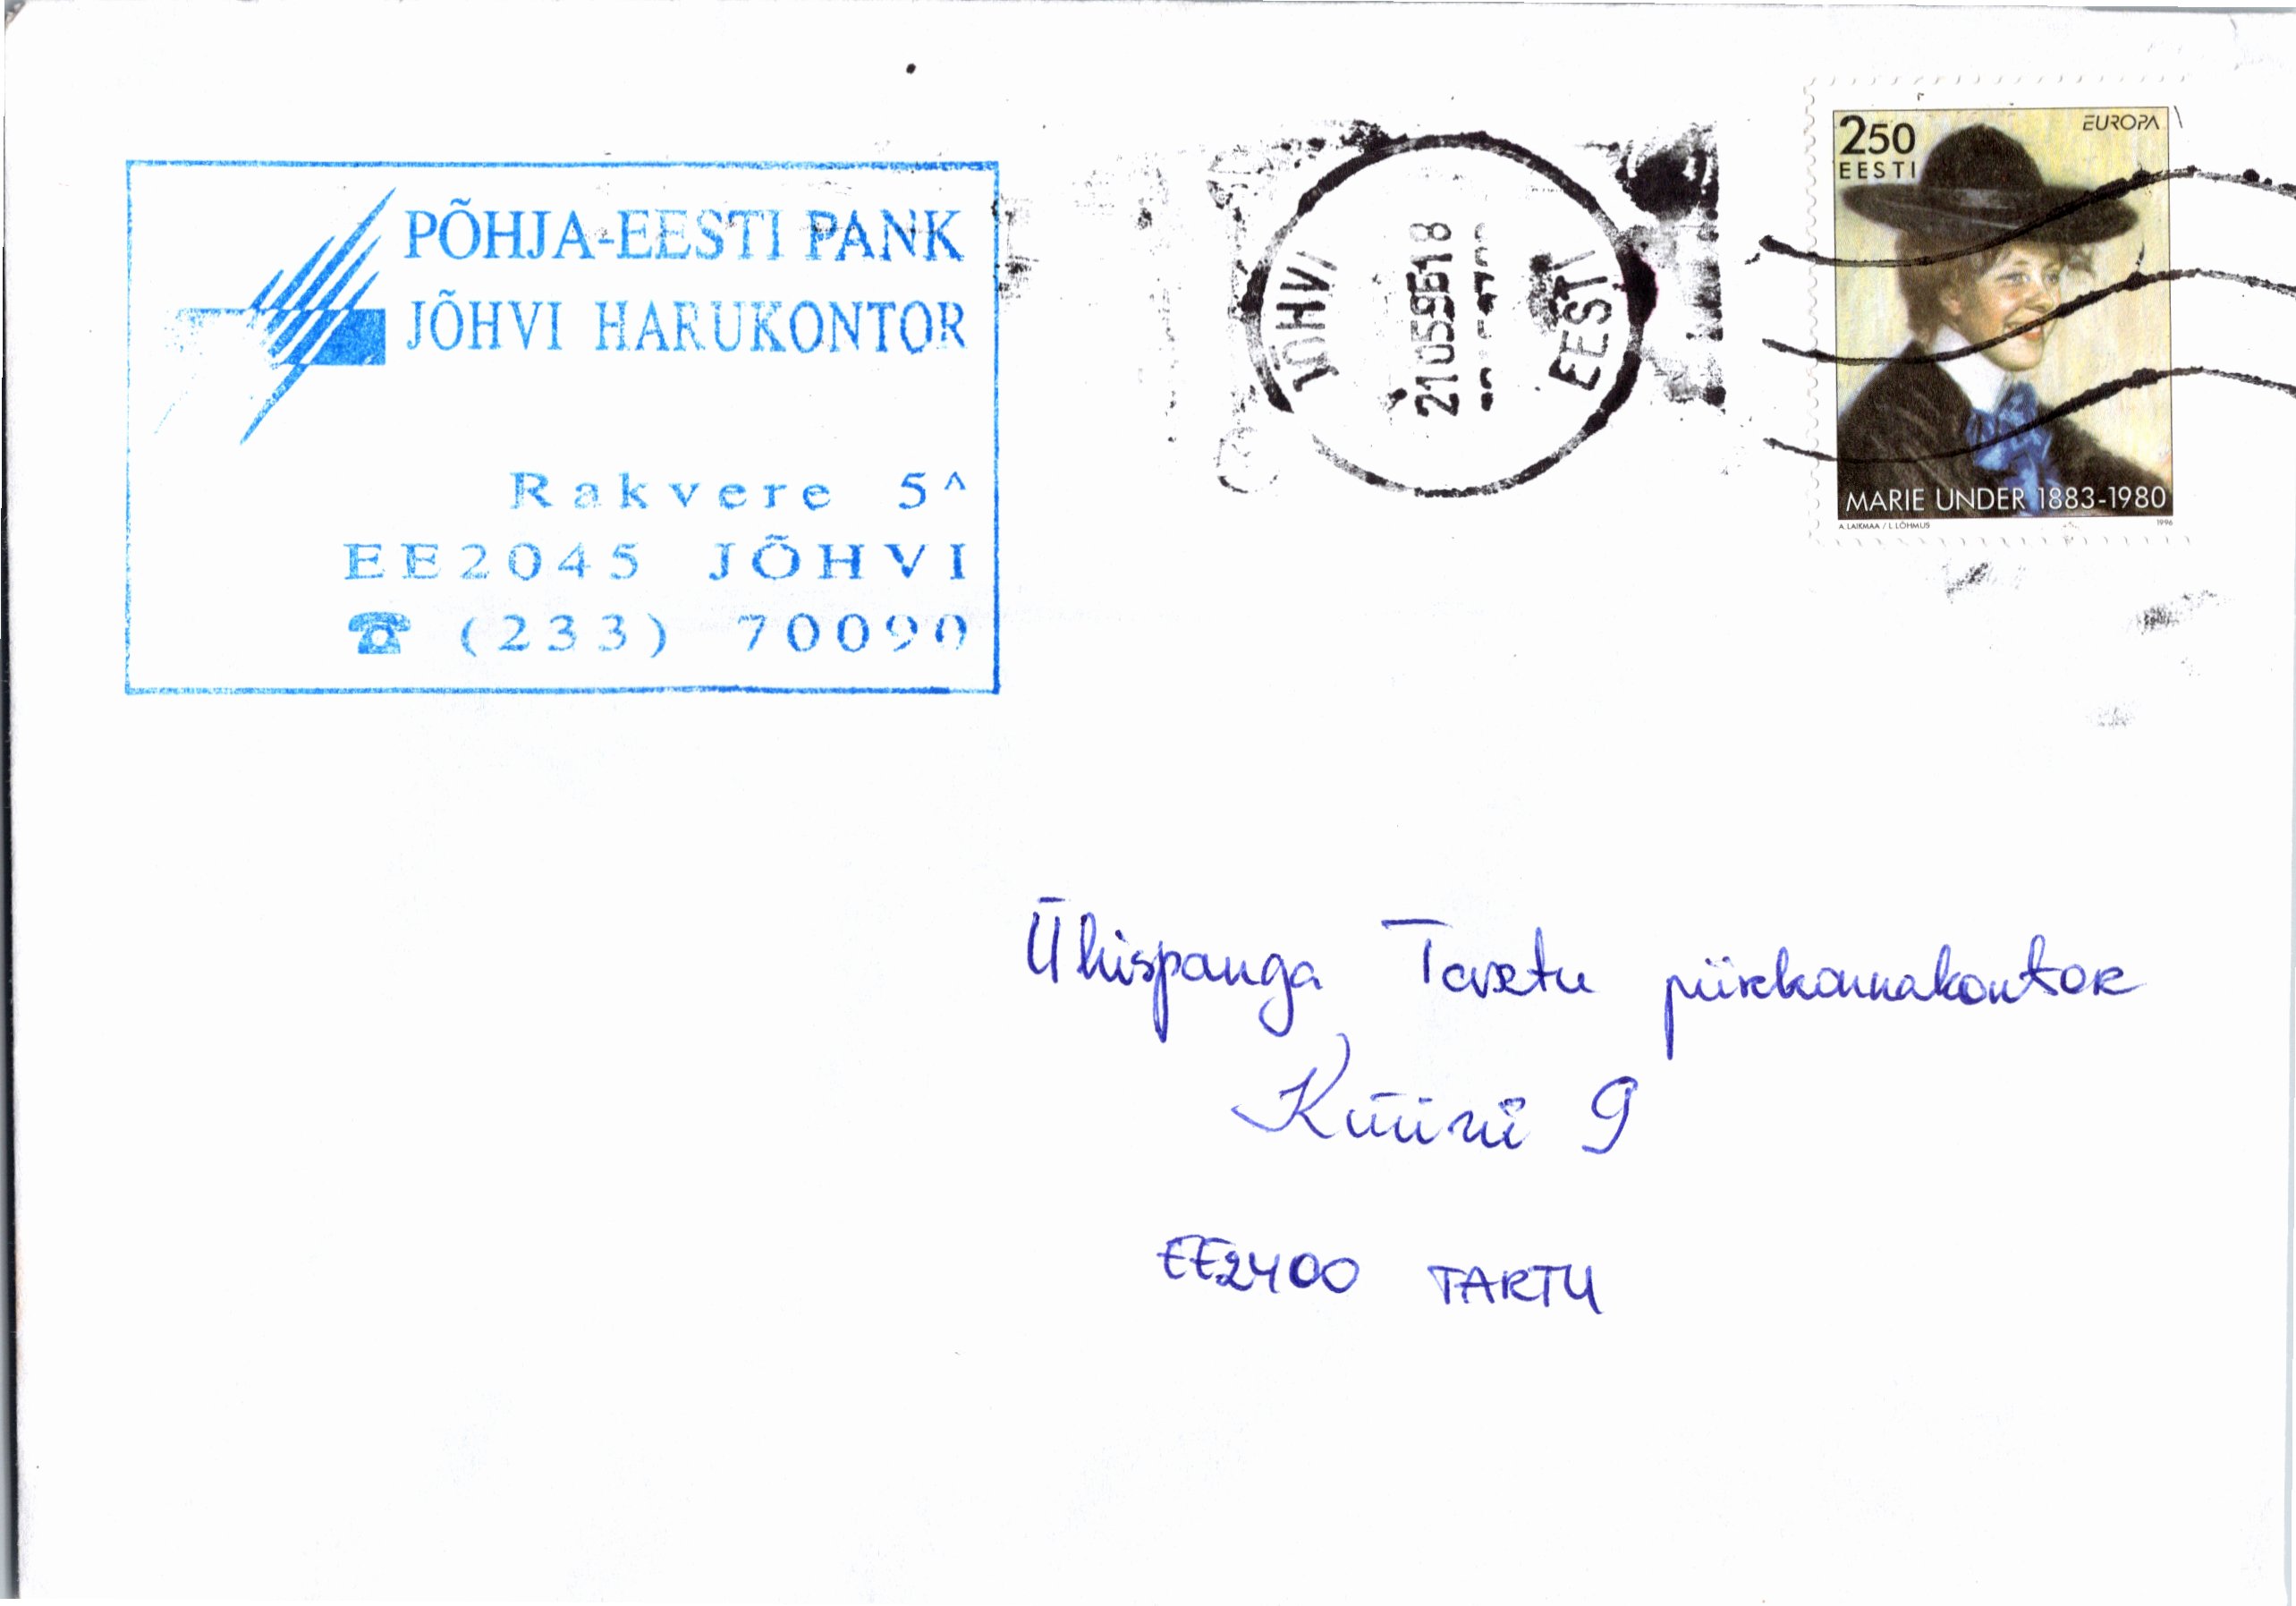 PÕHJA-EESTI PANK
JÕHVI HARUKONTOR
Rakvere 5^
EE2045 JÕHVI
☎ (233) 70090
JÕHVI
21059618
EESTI
250
EESTI
EUROPA
MARIE UNDER 1883-1980
A. LAIKMAA / L. LÕHMUS
1996
Ühispanga Tartu piirkonnakontor
Küüni 9
EE2400 TARTU